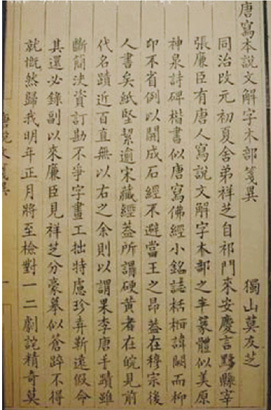 唐寫本說文解字木部箋異
獨山莫友芝
同治改元初夏舍弟祥芝自祁門來安慶言黟縣宰
張廉臣有唐人寫說文解字木部之半篆體似美原
神泉詩碑楷書似唐寫佛經小銘誌栝桓諱闕而柳
卬不省例以開成石經不避當王之昂蓋在穆宗後
人書矣紙堅絜逾宋藏經蓋所謂硬黃者在皖見前
代名蹟近百直無以右之余則以謂果李唐手蹟雖
斷簡決資訂勘不爭字畫工拙特慮珍弆靳遠假命
其還必錄副以來廉臣見祥芝分豪摹似蒼踤不得
就慨然歸我明年正月將至檢對一二劇詫精奇莫